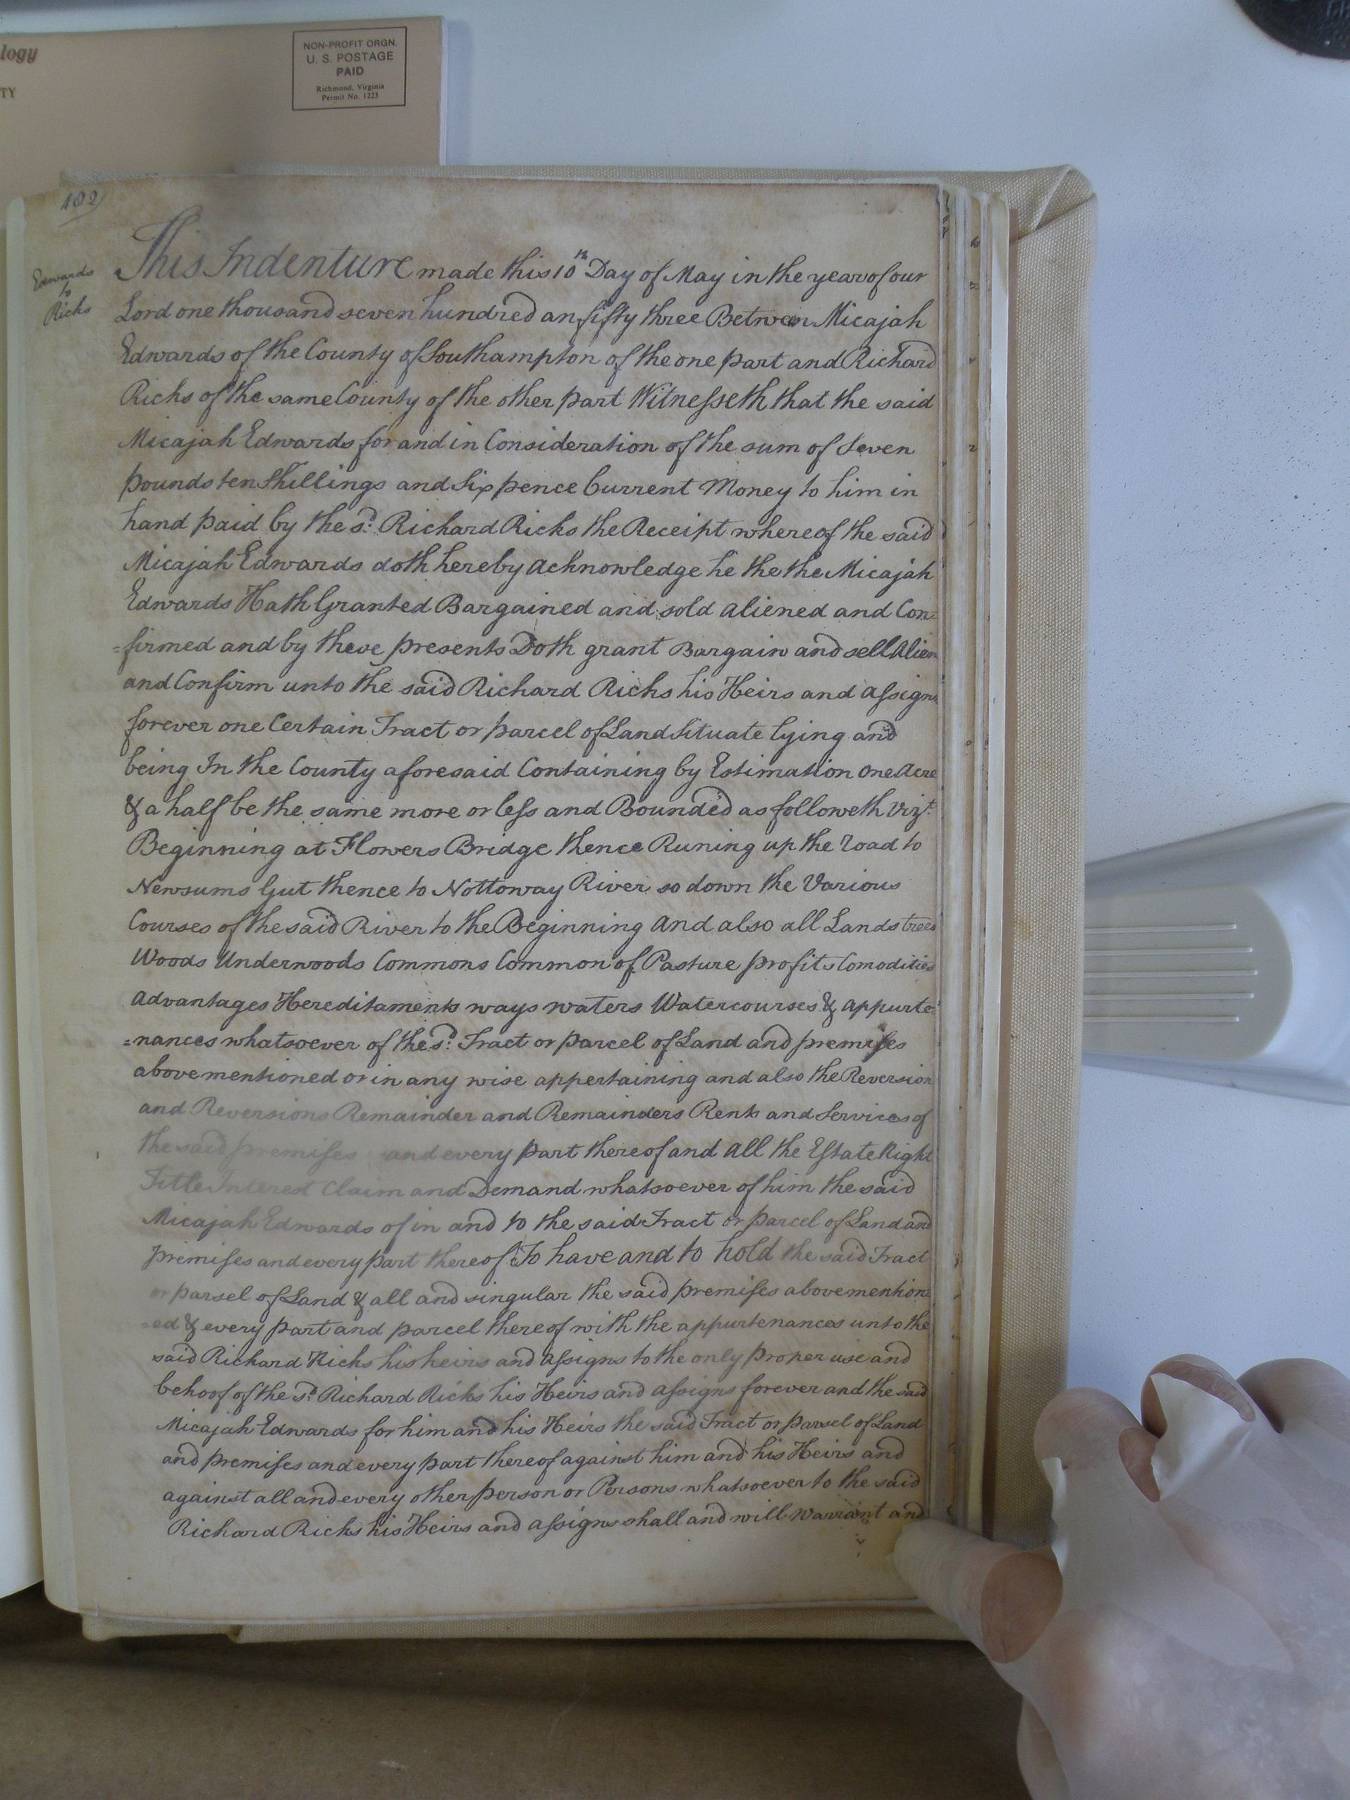 logy
TY
NON-PROFIT ORGN.
U. S. POSTAGE
PAID
Richmond, Virginia
Permit No. 1223
102
Edwards
to
Ricks
This Indenture made this 10th Day of May in the year of our
Lord one thousand seven hundred an fifty three Betwen Micajah
Edwards of the County of Southampton of the one part and Richard
Ricks of the same County of the other part Witnesseth that the said
Micajah Edwards for and in Consideration of the sum of Seven
pounds ten Shillings and Six pence Current Money to him in
hand paid by the sd. Richard Ricks the Receipt whereof the said
Micajah Edwards doth hereby Acknowledge he the the Micajah
Edwards Hath Granted Bargained and sold Aliened and Con=
=firmed and by these presents Doth grant Bargain and sell Alien
and Confirm unto the said Richard Ricks his Heirs and Assigns
forever one Certain Tract or parcel of Land Situate lying and
being In the County aforesaid Containing by Estimation one Acre
& a half be the same more or less and Bounded as followeth Vizt.
Beginning at Flowers Bridge thence Runing up the road to
Newsums Gut thence to Nottoway River so down the Various
Courses of the said River to the Beginning And also all Lands trees
Woods Underwoods Commons Common of Pasture profits Comodities
Advantages Hereditaments ways waters Watercourses & Appurte=
=nances whatsoever of the sd. Tract or parcel of Land and premises
above mentioned or in any wise appertaining and also the Reversion
and Reversions Remainder and Remainders Rents and Services of
the said premises and every part thereof and All the Estate Right
Title Interest Claim and Demand whatsoever of him the said
Micajah Edwards of in and to the said Tract or parcel of Land and
premises and every part thereof To have and to hold the said Tract
or parsel of Land & all and singular the said premises above mention
=ed & every part and parcel thereof with the appurtenances unto the
said Richard Ricks his heirs and Assigns to the only proper use and
behoof of the sd. Richard Ricks his Heirs and assigns forever and the said
Micajah Edwards for him and his Heirs the said Tract or parsel of Land
and premises and every part thereof against him and his Heirs and
against all and every other person or Persons whatsoever to the said
Richard Ricks his Heirs and assigns shall and will Warrant and